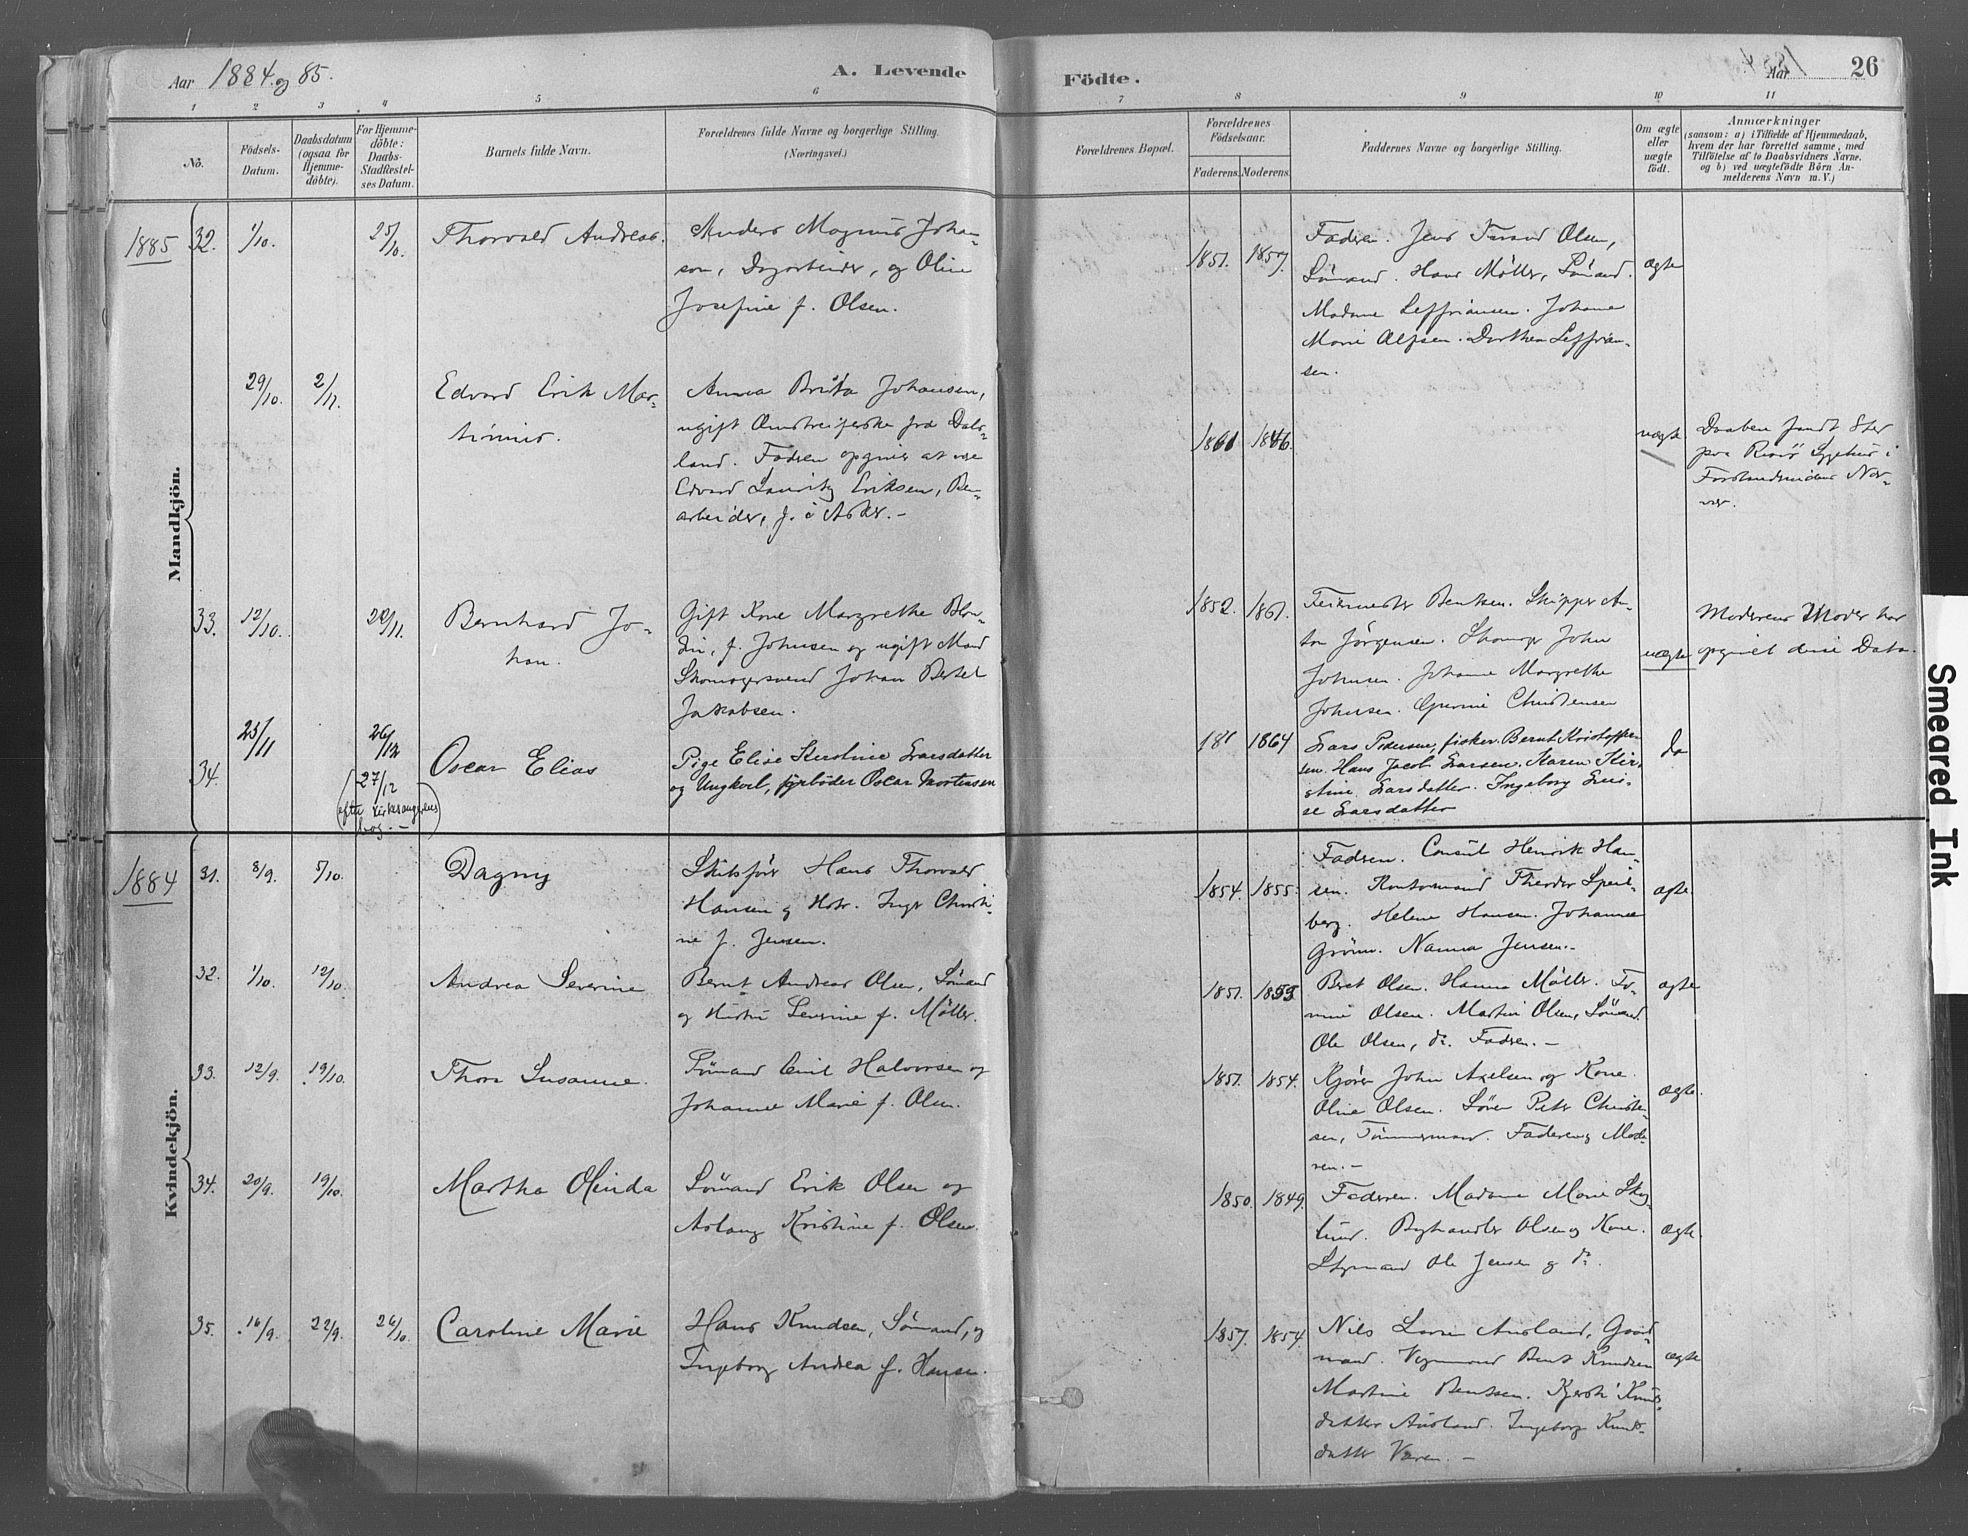 Aar 1884 og 85.
A. Levende Fødte.
Aar 1884
26
1 2 3 4 5 6 7 8 9 10 11
No.
Fødsels-Datum.
Daabsdatum (ogsaa for Hjemme-døbte).
For Hjemme-døbte: Daabs-Stadfæstel-ses Datum.
Barnets fulde Navn.
Forældrenes fulde Navne og borgerlige Stilling.
(Næringsvei.)
Forældrenes Bopæl.
Forældrenes Fødselsaar.
Faderens. Moderens.
Faddernes Navne og borgerlige Stilling.
Om ægte eller uægte født.
Anmærkninger
(saasom: a) i Tilfælde af Hjemmedaab, hvem der har forrettet samme, med Tilføielse af to Daabsvidners Navne, og b) ved uægtefødte Børn An-melderens Navn m. V.)
Mandkjøn.
1885 32. 1/10. 25/10. Thorvald Andreas.
Anders Magnus Johan-
son, Dagarbeider, og Oline
Josefine f. Olsen.
1851. 1857.
Faderen. Jens Olsen,
Sømand. Hans Møller, Sømand.
Madame Leffriansen. Johanne
Marie Alfsen. Dorthea Leffrian-
sen.
ægte
29/10. 2/11. Edvard Erik Mar-
tinius.
Anna Britta Johansen,
ugift Omstreiferske fra Dals-
land. Faderen opgives at være
Edvard Lauritz Eriksen,
arbeider, f. i Asker. -
1861 1846.
uægte
Daaben fandt Sted
paa Risør Sygehus i
Nær-
vær.
33. 12/10. 22/11. Bernhard Jo-
han.
Gift Kone Margrethe Blon-
din, f. Johnsen og ugift Mand
Skomagersvend Johan Bertel
Jakobsen.
1852. 1861.
Feiermester Bentsen. Skipper An-
ton Jørgensen. Skomager John
Johnsen. Johanne Margrethe
Johnsen. Christensen
uægte
Moderens Moder har
opgivet disse Data.
34. 25/11 26/12
(27/12
efter kirkesangerens
bog. -)
Oscar Elias
Pige Elise Larsdatter
og Ungkarl, fyrbøder Oscar Mortensen
186 1864
Lars Pedersen, fisker. Bernt Kristoffer-
sen. Hans Jacob Larsen. Karen Kir-
stine Larsdatter. Ingeborg Lovi-
se Larsdatter
do
Kvindekjøn.
1884 31. 8/9. 5/10. Dagny
Skibsfør. Hans Thorvald
Hansen og Hstr. Inger Christi-
ne f. Jensen.
1854. 1855.
Faderen. Consul Henrik Han-
sen. Kontormand Theodor Speil-
berg. Helene Hansen. Johanne
Grønn. Nanna Jensen.-
ægte
32. 1/10. 12/10. Andrea Severine
Bernt Andreas Olsen, Sømand
og Hustru Severine f. Møller.
1851. 1853
Beret Olsen. Hanna Møller. To-
mine Olsen. Martin Olsen, Sømand.
Ole Olsen, do. Faderen. -
ægte
33. 12/9. 19/10. Thora Susanne.
Sømand Emil Halvorsen og
Johanne Marie f. Olsen.
1851. 1854.
Kjører John Axelsen og Kone.
Oline Olsen. Søren Peter Christen-
sen, Tømmermand. Faderen og Mode-
ren. -
ægte.
34. 20/9. 19/10. Martha Olinda
Sømand Erik Olsen og
Aslaug Kristine f. Olsen.
1850. 1849.
Faderen. Madame Marie Skog-
lund. Olsen og Kone.
Styrmand Ole Jensen og do.
ægte.
35. 16/9. 22/9. 26/10. Caroline Marie
Hans Knudsen, Sømand, og
Ingeborg Andrea f. Hansen.
1857. 1854.
Nils Ausland, Gaard-
mand. Bent Knudsen
Martine Bentsen. Kjersti Knuds-
datter Ausland. Ingeborg Knuds-
datter Varen. -
ægte
Smeared Ink